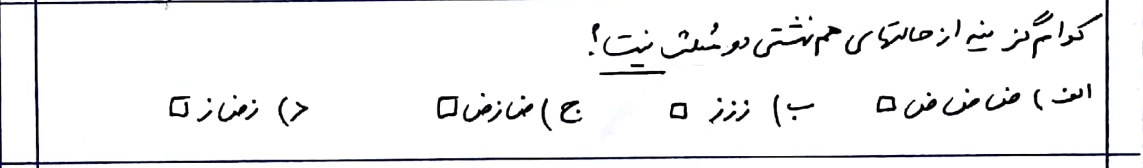 کدام گزینه از حالتهای هم نهشتی دو مثلث نیست؟
الف) ض ض ض □ ب) ززز □ ج) ض ز ض □ د) ز ض ز □